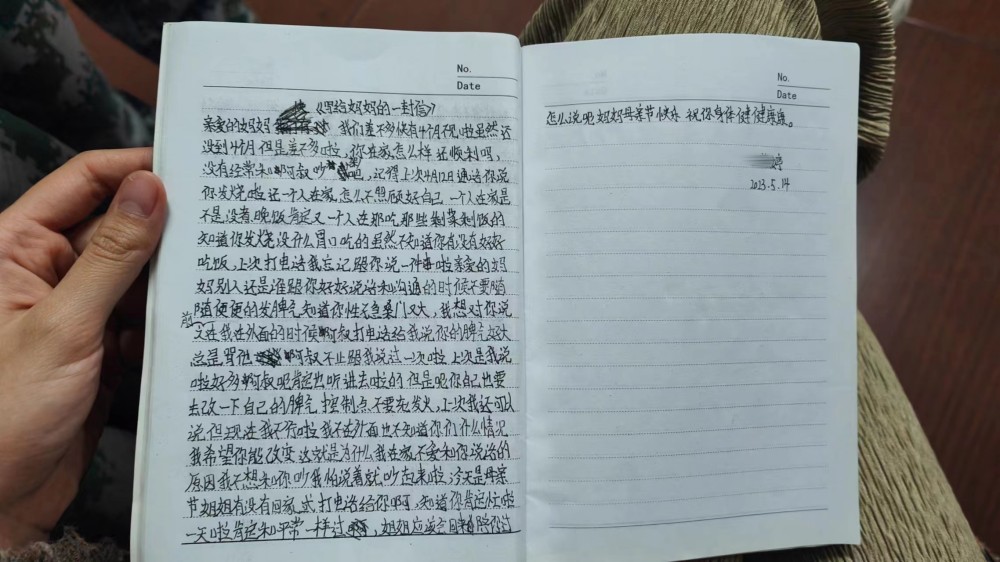 No.
Date
《写给妈妈的一封信》
亲爱的妈妈 我们差不多快有4个月不见啦虽然还
没到4个月但是差不多啦,你在家怎么样还顺利吗,
没有经常和啊叔吵 吧,记得上次4月12日通话你说
你发烧啦还一个人在家,怎么不照顾好自己 一个人在家是
不是没煮晚饭肯定又一个人在那吃那些剩菜剩饭的
知道你发烧没什么胃口吃的虽然不知道你有没有好好
吃饭,上次打电话我忘记跟你说一件事啦亲爱的妈
妈别人还是谁跟你好好说话和沟通的时候不要随
随便便的发脾气知道你性子急嗓门又大,我想对你说
前
文在我在外面的时候啊叔打电话给我说你的脾气好大
总是骂他 啊叔不止跟我说过一次啦 上次是我说
啦好多啊叔呢肯定也听进去啦的 但是呢你自己也要
去改一下自己的脾气 控制点不要乱发火,上次我还可以
说但现在我不行啦我不在外面也不知道你们什么情况
我希望你能改变 这就是为什么我在家不爱和你说话的
原因我不想和你吵我怕说着就吵起来啦,今天是母亲
节姐姐有没有回家 或打电话给你啊,知道你肯定忙啦
一天啦肯定和平常一样过 ,姐姐应该 陪你过
No.
Date
怎么说呢妈妈母亲节快乐 祝你身体健健康康。
婷
2023.5.14